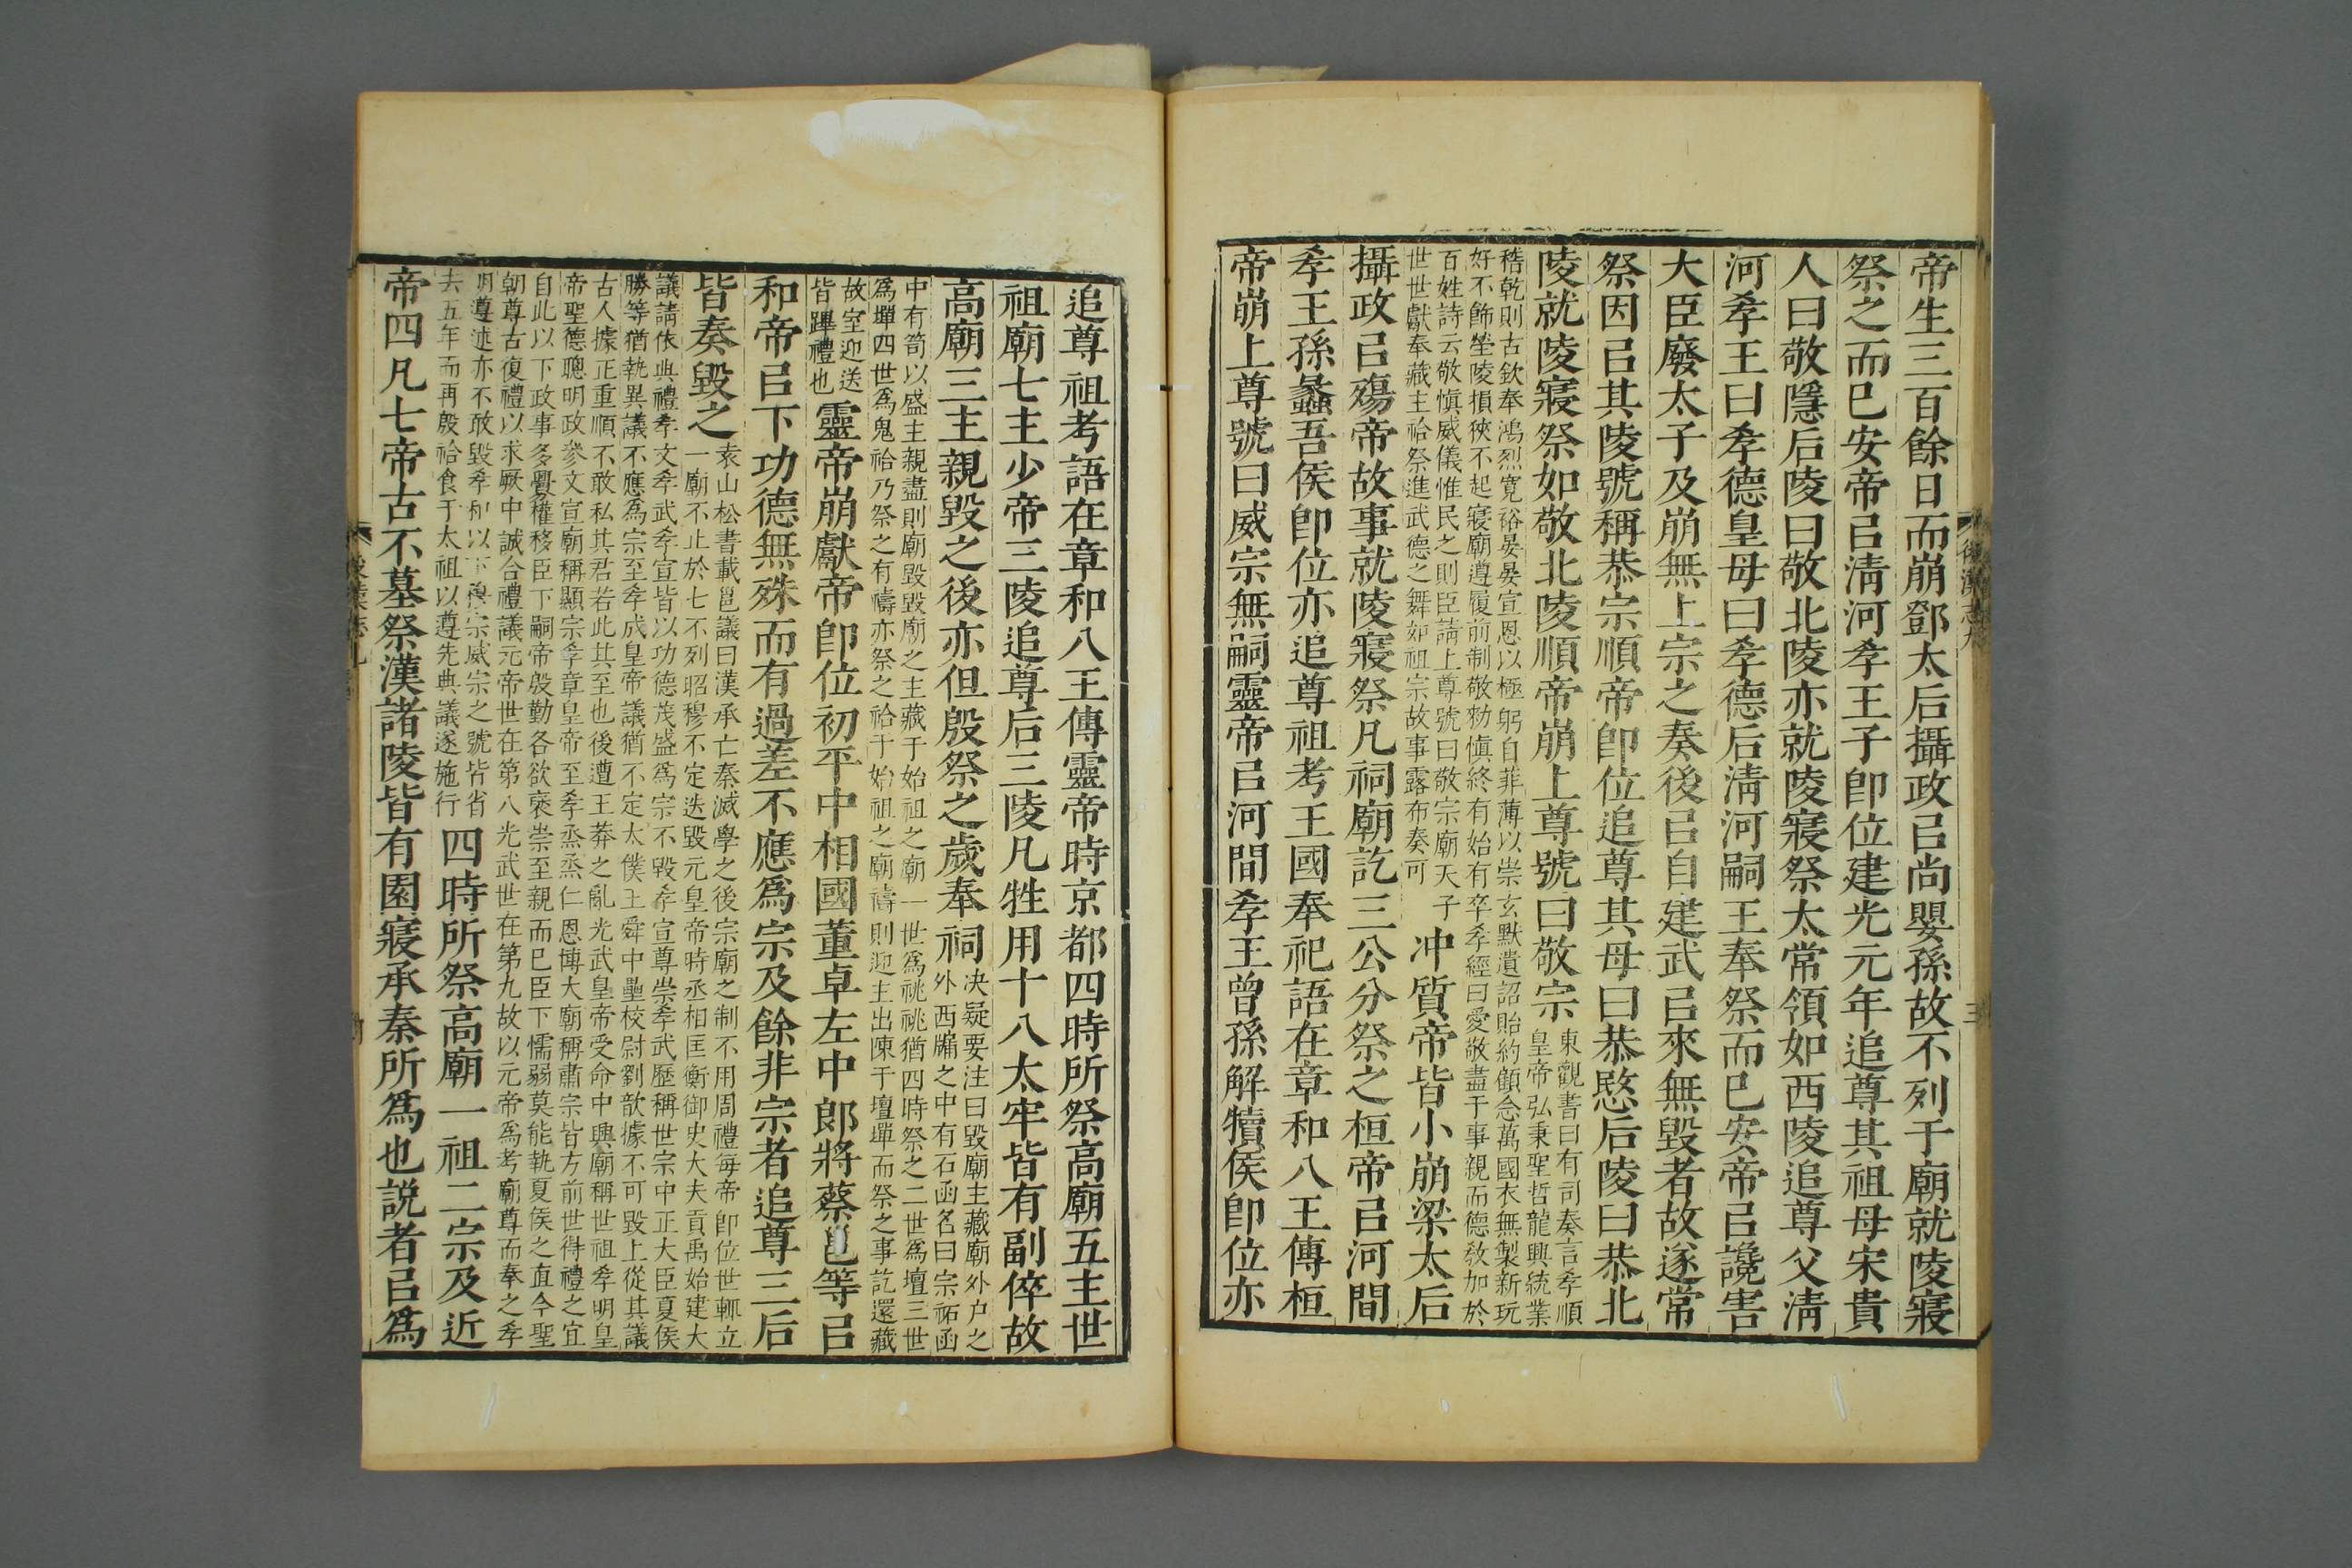 帝生三百餘日而崩鄧太后攝政㠯尚嬰孫故不列于廟就陵寢
祭之而巳安帝㠯清河孝王子即位建光元年追尊其祖母宋貴
人曰敬隱后陵曰敬北陵亦就陵寢祭太常領如西陵追尊父清
河孝王曰孝德皇母曰孝德后清河嗣王奉祭而巳安帝㠯讒害
大臣廢太子及崩無上宗之奏後㠯自建武㠯來無毀者故遂常
祭因㠯其陵號稱恭宗順帝即位追尊其母曰恭愍后陵曰恭北
陵就陵寢祭如敬北陵順帝崩上尊號曰敬宗
東觀書曰有司奏言孝順
皇帝弘秉聖哲龍興統業
稽乾則古欽奉鴻烈寬裕晏晏宣恩以極躬自菲薄以崇玄默遺詔貽約顧念萬國衣無製新玩
好不飾塋陵損狹不起寢廟遵履前制敬勑慎終有始有卒孝經曰愛敬盡于事親而德教加於
百姓詩云敬慎威儀惟民之則臣請上尊號曰敬宗廟天子
世世獻奉藏主祫祭進武德之舞如祖宗故事露布奏可
冲質帝皆小崩梁太后
攝政㠯殤帝故事就陵寢祭凡祠廟訖三公分祭之桓帝㠯河間
孝王孫蠡吾侯即位亦追尊祖考王國奉祀語在章和八王傳桓
帝崩上尊號曰威宗無嗣靈帝㠯河間孝王曾孫解犢侯即位亦
後漢志九
三
追尊祖考語在章和八王傳靈帝時京都四時所祭高廟五主世
祖廟七主少帝三陵追尊后三陵凡牲用十八太牢皆有副倅故
高廟三主親毀之後亦但殷祭之歲奉祠
決疑要注曰毀廟主藏廟外户之
外西牖之中有石函名曰宗祏函
中有笥以盛主親盡則廟毀毀廟之主藏于始祖之廟一世爲祧祧猶四時祭之二世爲壇三世
爲墠四世爲鬼祫乃祭之有禱亦祭之祫于始祖之廟禱則迎主出陳于壇墠而祭之事訖還藏
故室迎送
皆蹕禮也
靈帝崩獻帝即位初平中相國董卓左中郎將蔡邕等㠯
和帝㠯下功德無殊而有過差不應爲宗及餘非宗者追尊三后
皆奏毀之
袁山松書載邕議曰漢承亡秦滅學之後宗廟之制不用周禮每帝即位世輒立
一廟不止於七不列昭穆不定迭毀元皇帝時丞相匡衡御史大夫貢禹始建大
議請依典禮孝文孝武孝宣皆以功德茂盛爲宗不毀孝宣尊崇孝武歷稱世宗中正大臣夏侯
勝等猶執異議不應爲宗至孝成皇帝議猶不定太僕王舜中壘校尉劉歆據不可毀上從其議
古人據正重順不敢私其君若此其至也後遭王莽之亂光武皇帝受命中興廟稱世祖孝明皇
帝聖德聰明政參文宣廟稱顯宗孝章皇帝至孝烝烝仁恩博大廟稱肅宗皆方前世得禮之宜
自此以下政事多釁權移臣下嗣帝殷勤各欲襃崇至親而巳臣下懦弱莫能執夏侯之直今聖
朝尊古復禮以求厥中誠合禮議元帝世在第八光武世在第九故以元帝爲考廟尊而奉之孝
明遵述亦不敢毀孝和以下穆宗威宗之號皆省
去五年而再殷祫食于太祖以遵先典議遂施行
四時所祭高廟一祖二宗及近
帝四凡七帝古不墓祭漢諸陵皆有園寢承秦所爲也說者㠯爲
後漢志九